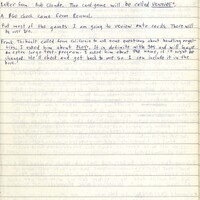 Letter from Bob Claude. The card game will be called VENTURE.
A $100 check came from Renewal.
Put most of the games I am going to review onto cards. There will
be
Frank Thibault called from California to ask some questions about handling
I asked him about PLOY. It is definite with 3M and will have
an extra large test program. I asked him about the name, if it might be
changed. He'll check and get back to me so I can include it in the
book.